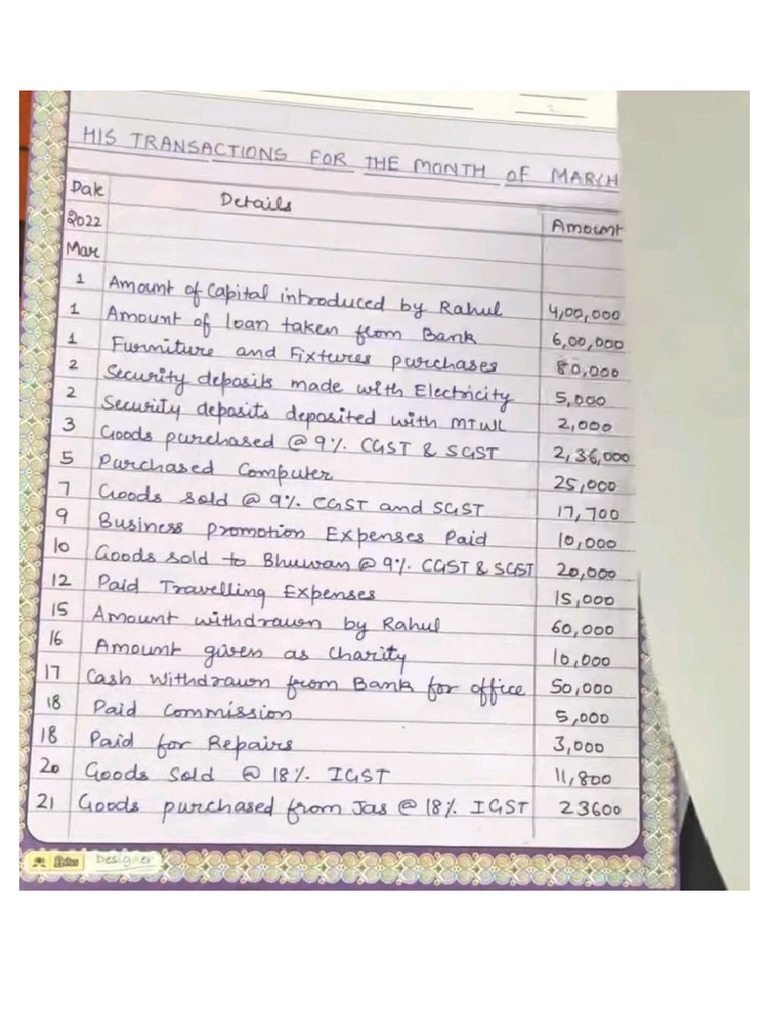 HIS TRANSACTIONS FOR THE MONTH OF MARCH
Date Details Amount
2022
Mar
1 Amount of Capital introduced by Rahul 4,00,000
1 Amount of loan taken from Bank 6,00,000
1 Furniture and Fixtures purchases 80,000
2 Security deposits made with Electricity 5,000
2 Security deposits deposited with MTWL 2,000
3 Goods purchased @ 9%. CGST & SGST 2,36,000
5 Purchased Computer 25,000
7 Goods sold @ 9%. CGST and SGST 17,700
9 Business promotion Expenses Paid 10,000
10 Goods sold to Bhuwan @ 9%. CGST & SGST 20,000
12 Paid Travelling Expenses 15,000
15 Amount withdrawn by Rahul 60,000
16 Amount given as Charity 10,000
17 Cash withdrawn from Bank for office 50,000
18 Paid Commission 5,000
18 Paid for Repairs 3,000
20 Goods Sold @ 18%. IGST 11,800
21 Goods purchased from Jas @ 18%. IGST 23600
Designer